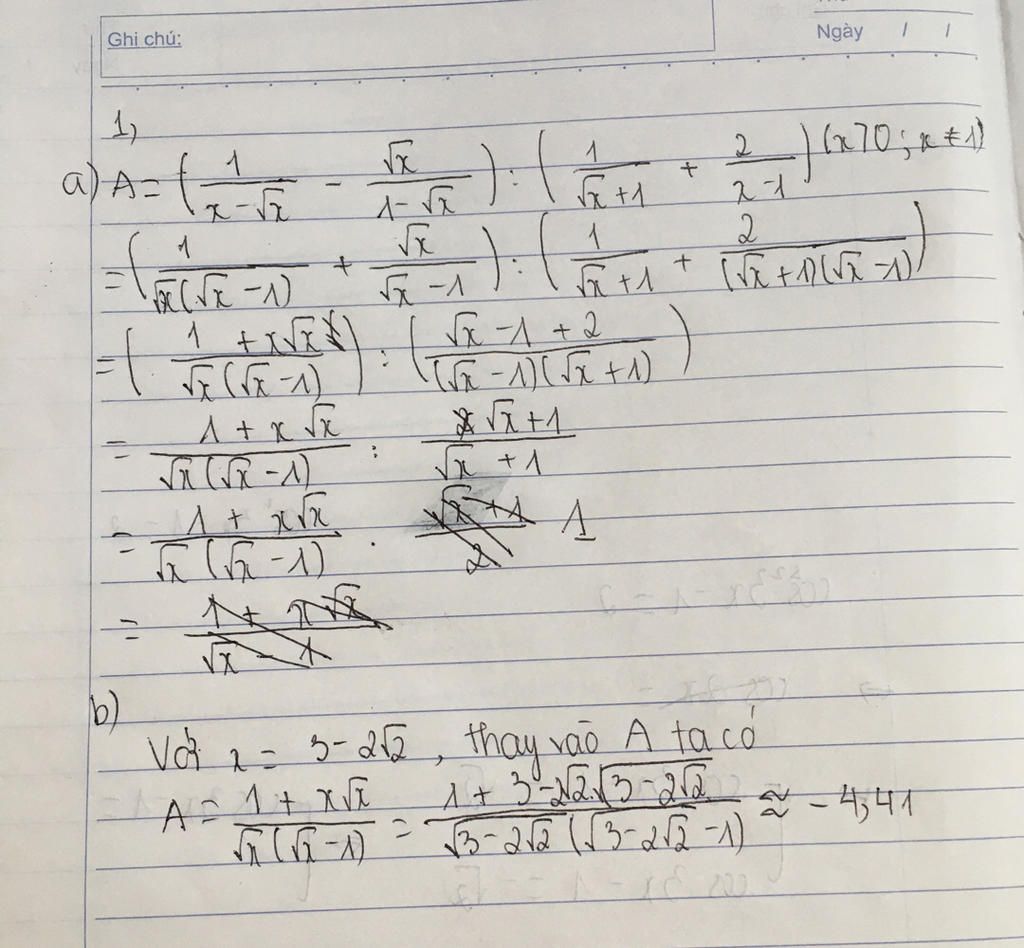 Ghi chú:
Ngày / /
1,
a) A = (1/(x - √x) - √x/(1 - √x)) : (1/(√x + 1) + 2/(x - 1)) (x > 0; x ≠ 1)
= (1/(√x(√x - 1)) + √x/(√x - 1)) : (1/(√x + 1) + 2/((√x + 1)(√x - 1)))
= ((1 + x√x)/(√x(√x - 1))) : ((√x - 1 + 2)/((√x - 1)(√x + 1)))
= (1 + x√x)/(√x(√x - 1)) : (√x + 1)/(√x + 1)
= (1 + x√x)/(√x(√x - 1)) . (√x + 1)/2 1
= (1 + x√x)/(√x - 1)
b)
Với x = 3 - 2√2, thay vào A ta có
A = (1 + x√x)/(√x(√x - 1)) = (1 + 3 - 2√2√(3 - 2√2))/(√(3 - 2√2)(√(3 - 2√2) - 1)) ≈ - 4,41